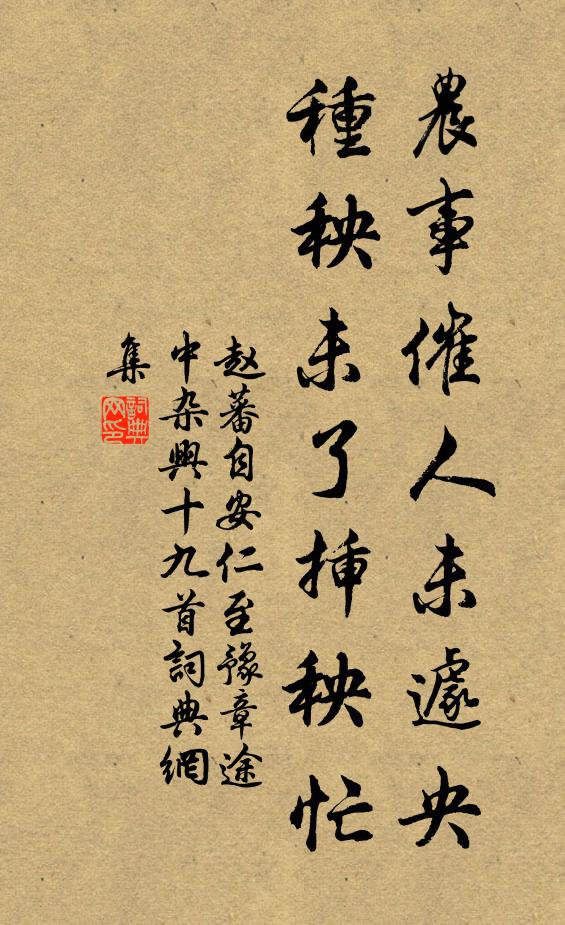 農事催人未遽央
種秧未了挿秧忙
赵蕃自安仁至豫章途
中杂興十九首詞典網
集
詞典
网印